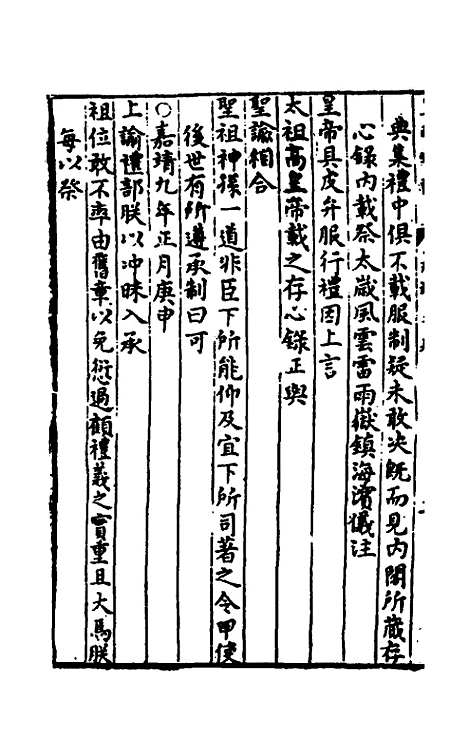 典集禮中俱不載服制疑未敢决旣而見内閣所藏存
心錄内載祭太歲風雲雷雨嶽鎮海瀆儀注
皇帝具皮弁服行禮因上言
太祖高皇帝載之存心錄正與
聖諭相合
聖祖神謨一道非臣下所能仰及宜下所司著之令甲使
後世有所遵承制曰可
○嘉靖九年正月庚申
上諭禮部朕以冲昧入承
祖位敢不率由舊章以免愆過顧禮義之實重且大焉朕
每以祭